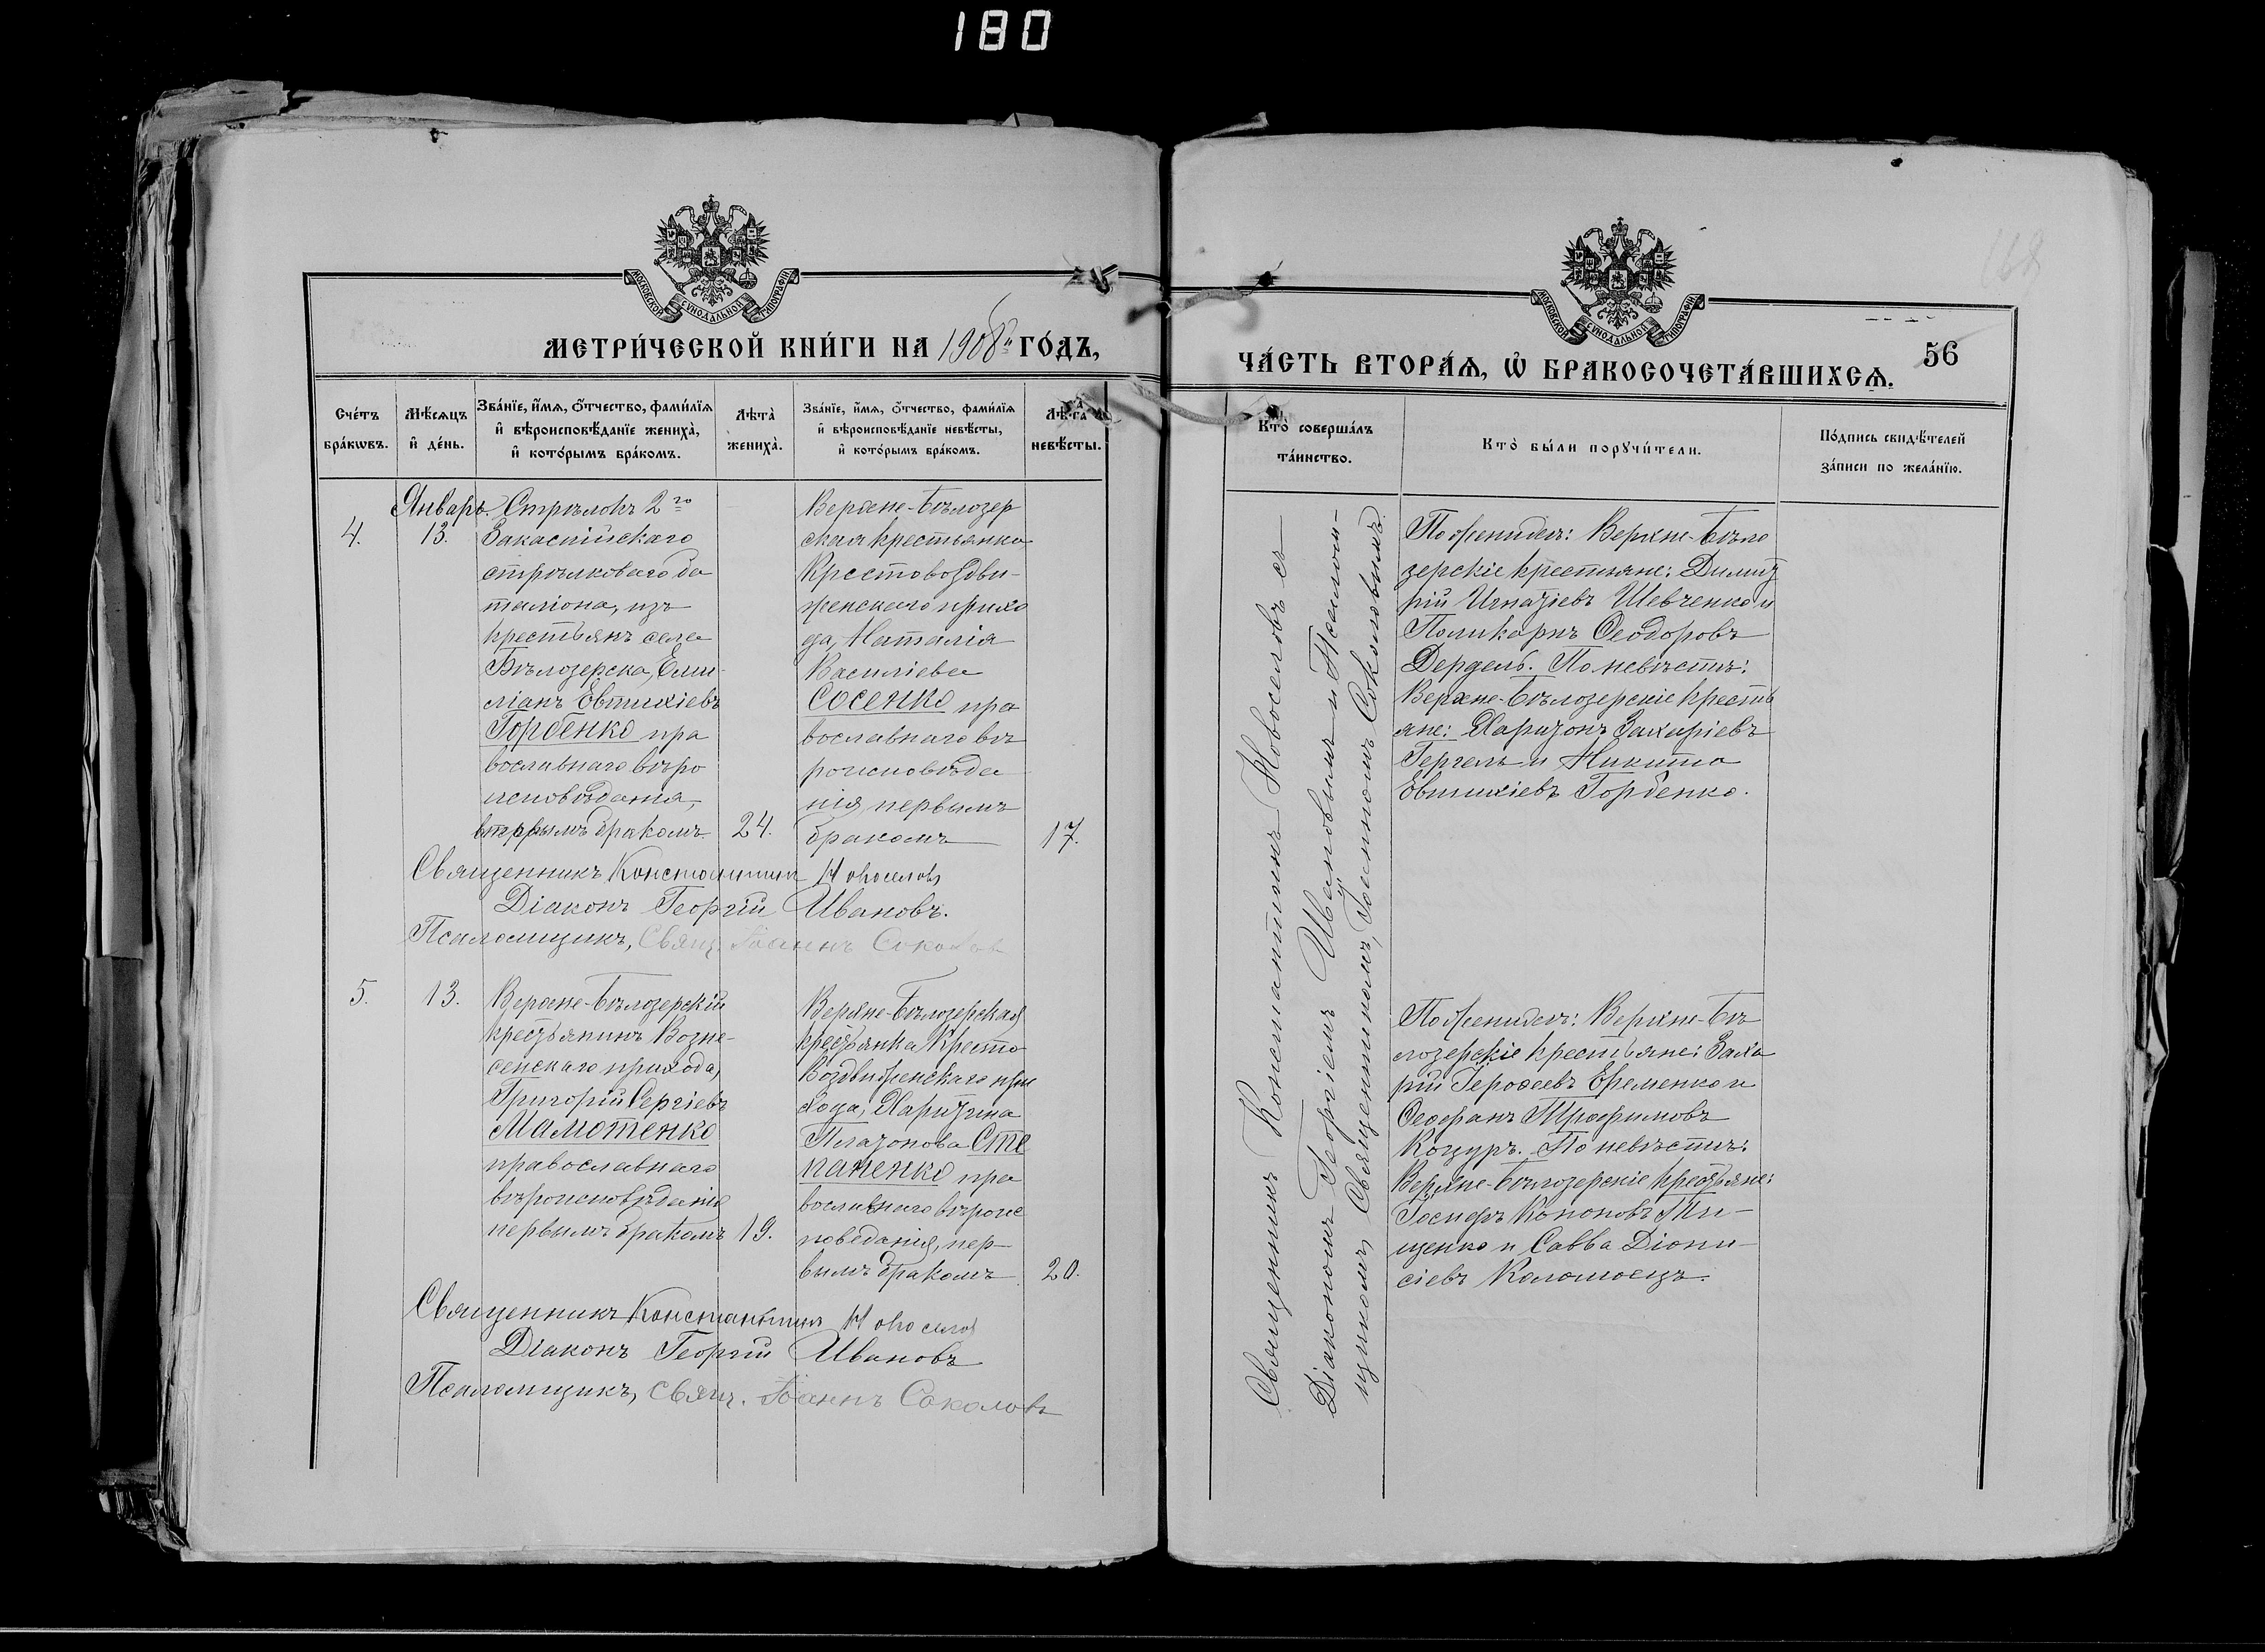 180
МОСКОВСКОЙ СѴНОДАЛЬНОЙ ТИПОГРАФІИ
МЕТРИ́ЧЕСКОЙ КНИ́ГИ НА 1908й ГО́ДЪ,
Сче́тъ бра́кѡвъ.
Мѣ́сѧцъ и҆ де́нь.
Зва́нїе, и҆́мѧ, ѻ҆́тчество, фами́лїѧ и҆ вѣроисповѣ́данїе жениха̀, и҆ кото́рымъ бра́комъ.
Лѣта̀ жениха̀.
Зва́нїе, и҆́мѧ, ѻ҆́тчество, фами́лїѧ и҆ вѣроисповѣ́данїе невѣ́сты, и҆ кото́рымъ бра́комъ.
Лѣта̀ невѣ́сты.
4.
Январь.
13.
Стрѣлокъ 2го
Закаспійскаго
стрѣлковаго ба
таліона, изъ
крестьянъ села
Бѣлозерска, Еми-
ліанъ Евтихіевъ
Горбенко пра
вославнаго вѣро
исповѣданія,
первымъ бракомъ.
24.
Верхне-Бѣлозер
ская крестьянка
Крестовоздви-
женскаго прихо
да, Наталія
Василіева
Сосенко пра
вославнаго вѣ
роисповѣда
нія, первымъ
бракомъ
17.
Священникъ Константинъ Новоселовъ
Діаконъ Георгій Ивановъ.
Псаломщикъ, Свящ. Іоаннъ Соколовъ
5.
13.
Верхне-Бѣлозерскій
крестьянинъ Возне-
сенскаго прихода,
Григорій Сергіевъ
Мамотенко
православнаго
вѣроисповѣданія
первымъ бракомъ
19.
Верхне-Бѣлозерская
крестьянка Кресто
воздвиженскаго при
хода, Харитина
Платонова Сте
паненко пра
вославнаго вѣроис
поведанія, пер-
вымъ бракомъ
20.
Священникъ Константинъ Новоселовъ
Діаконъ Георгій Ивановъ
Псаломщикъ, свящ. Іоаннъ Соколовъ
МОСКОВСКОЙ СѴНОДАЛЬНОЙ ТИПОГРАФІИ
ЧА́СТЬ ВТОРА́Ѧ, Ѡ҆ БРАКОСОЧЕТА́ВШИХСѦ.
56
Кто̀ соверша́лъ та́инство.
Кто̀ бы́ли порꙋчи́тели.
По́дпись свидѣ́телей за́писи по жела́нїю.
Священникъ Константинъ Новоселовъ съ
Діакономъ Георгіемъ Ивановымъ и Псалом-
щикомъ, Священникомъ, Іоанномъ Соколовымъ.
По женихѣ: Верхне-Бѣло
зерскіе крестьяне: Димит
рій Игнатіевъ Шевченко и
Поликарпъ Ѳеодоровъ
Дердель. По невѣстѣ:
Верхне-Бѣлозерскіе кресть
яне: Харитонъ Захаріевъ
Гергель и Никита
Евтихіевъ Горбенко.
По женихѣ: Верхне-Бѣ
лозерскіе крестьяне: Заха
рій Іероѳеевъ Еременко и
Ѳеофанъ Трофимовъ
Коцуръ. По невѣстѣ:
Верхне-Бѣлозерскіе крестьяне:
Іосифъ Кононовъ Ти-
щенко и Савва Діони-
сіевъ Коломоецъ.